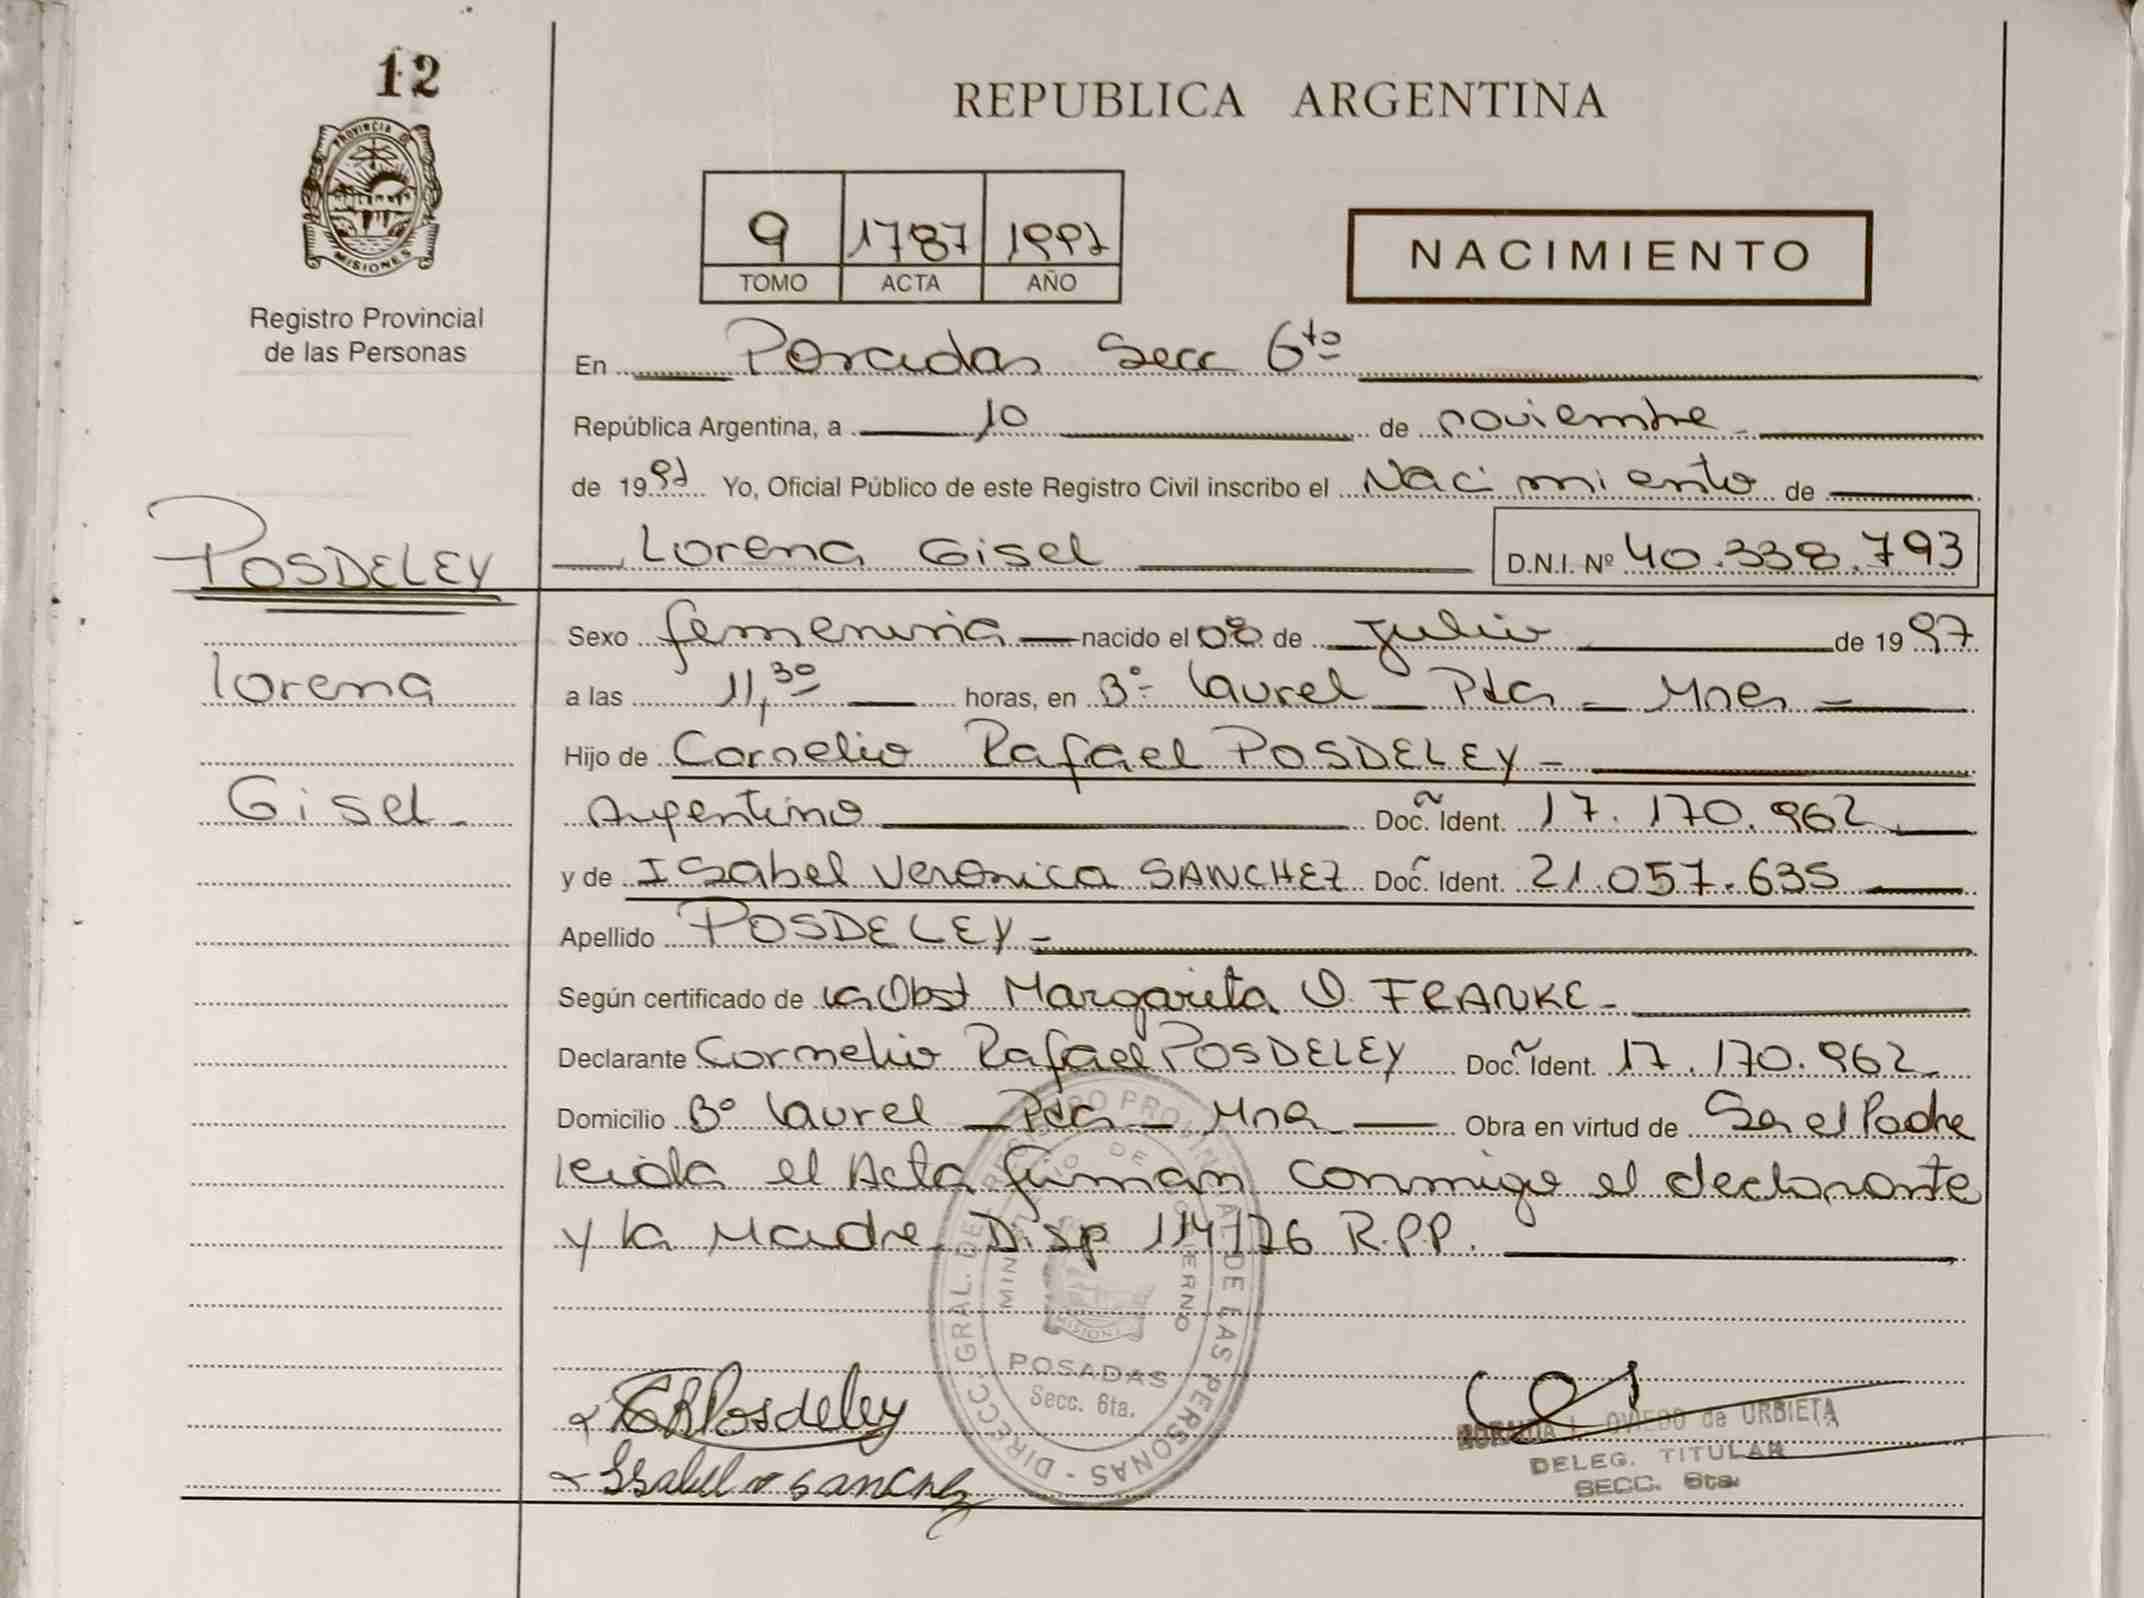 12
PROVINCIA DE
MISIONES
Registro Provincial
de las Personas
REPUBLICA ARGENTINA
9 1787 1997
TOMO ACTA AÑO
NACIMIENTO
En Posadas Secc 6ta
República Argentina, a 10 de noviembre
de 1997 Yo, Oficial Público de este Registro Civil inscribo el Nacimiento de
Lorena Gisel D.N.I. Nº 40.338.793
POSDELEY
Lorena
Gisel
Sexo femenina nacido el 08 de Julio de 1997
a las 11,30 horas, en Bº Laurel Pdas Mnes
Hijo de Cornelio Rafael POSDELEY
Argentino Doc. Ident. 17.170.962
y de Isabel Veronica SANCHEZ Doc. Ident. 21.057.635
Apellido POSDELEY
Según certificado de la Obst Margarita O. FRANKE
Declarante Cornelio Rafael POSDELEY Doc. Ident. 17.170.962
Domicilio Bº Laurel Pdas Mnes Obra en virtud de Ser el Padre
leida el Acta firman conmigo el declarante
y la Madre Disp 114/76 R.P.P.
DIRECC. GRAL. DEL REGISTRO PROVINCIAL DE LAS PERSONAS
MINISTERIO DE GOBIERNO
MISIONES
POSADAS
Secc. 6ta.
CRPosdeley
Isabel v sanchez
OVIEDO de URBIETA
DELEG. TITULAR
SECC. 6ta.